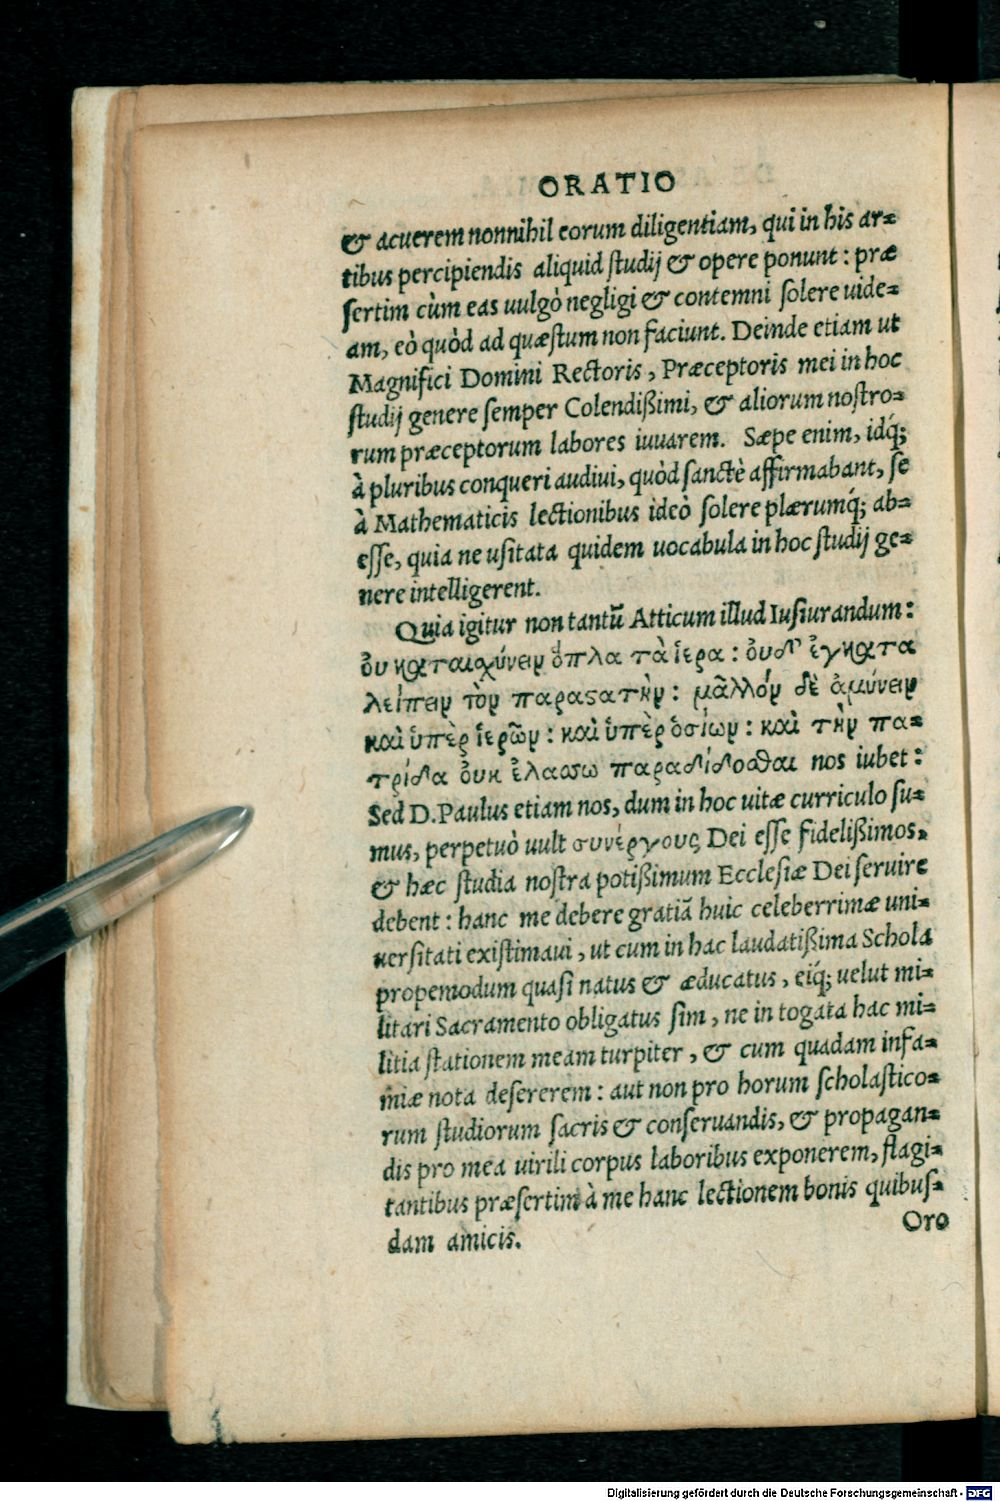 ORATIO
& acuerem nonnihil eorum diligentiam, qui in his ar=
tibus percipiendis aliquid ſtudij & opere ponunt : præ
ſertim cùm eas uulgò negligi & contemni ſolere uide=
am, eò quòd ad quæſtum non faciunt. Deinde etiam ut
Magnifici Domini Rectoris, Præceptoris mei in hoc
ſtudij genere ſemper Colendißimi, & aliorum noſtro=
rum præceptorum labores iuuarem. Sæpe enim, idq́;
à pluribus conqueri audiui, quòd ſanctè affirmabant, ſe
à Mathematicis lectionibus ideò ſolere plærumq́; ab=
eſſe, quia ne uſitata quidem uocabula in hoc ſtudij ge=
nere intelligerent.
Quia igitur non tantũ Atticum illud Iuſiurandum :
ὀυ καταιχύνειν ὅπλα τὰ ἱερα : ὀυδ' ἐγκατα
λείπειν τὸν παραϛατὴν : μᾶλλόν δὲ ἀμύνειν
καὶ ὑπὲρ ἱερῶν : καὶ ὑπὲρ ὁσίων : καὶ τὴν πα=
τρίδα ὀυκ ἐλασσω παραδίδοσθαι nos iubet :
Sed D. Paulus etiam nos, dum in hoc uitæ curriculo ſu=
mus, perpetuò uult συνέργους Dei eſſe fidelißimos,
& hæc ſtudia noſtra potißimum Eccleſiæ Dei ſeruire
debent : hanc me debere gratiã huic celeberrimæ uni=
uerſitati exiſtimaui, ut cum in hac laudatißima Schola
propemodum quaſi natus & æducatus, eiq́; uelut mi=
litari Sacramento obligatus ſim, ne in togata hac mi=
litia ſtationem meam turpiter, & cum quadam infa=
miæ nota deſererem : aut non pro horum ſcholaſtico=
rum ſtudiorum ſacris & conſeruandis, & propagan=
dis pro mea uirili corpus laboribus exponerem, flagi=
tantibus præſertim à me hanc lectionem bonis quibuſ=
dam amicis.
Oro
Digitalisierung gefördert durch die Deutsche Forschungsgemeinschaft - DFG